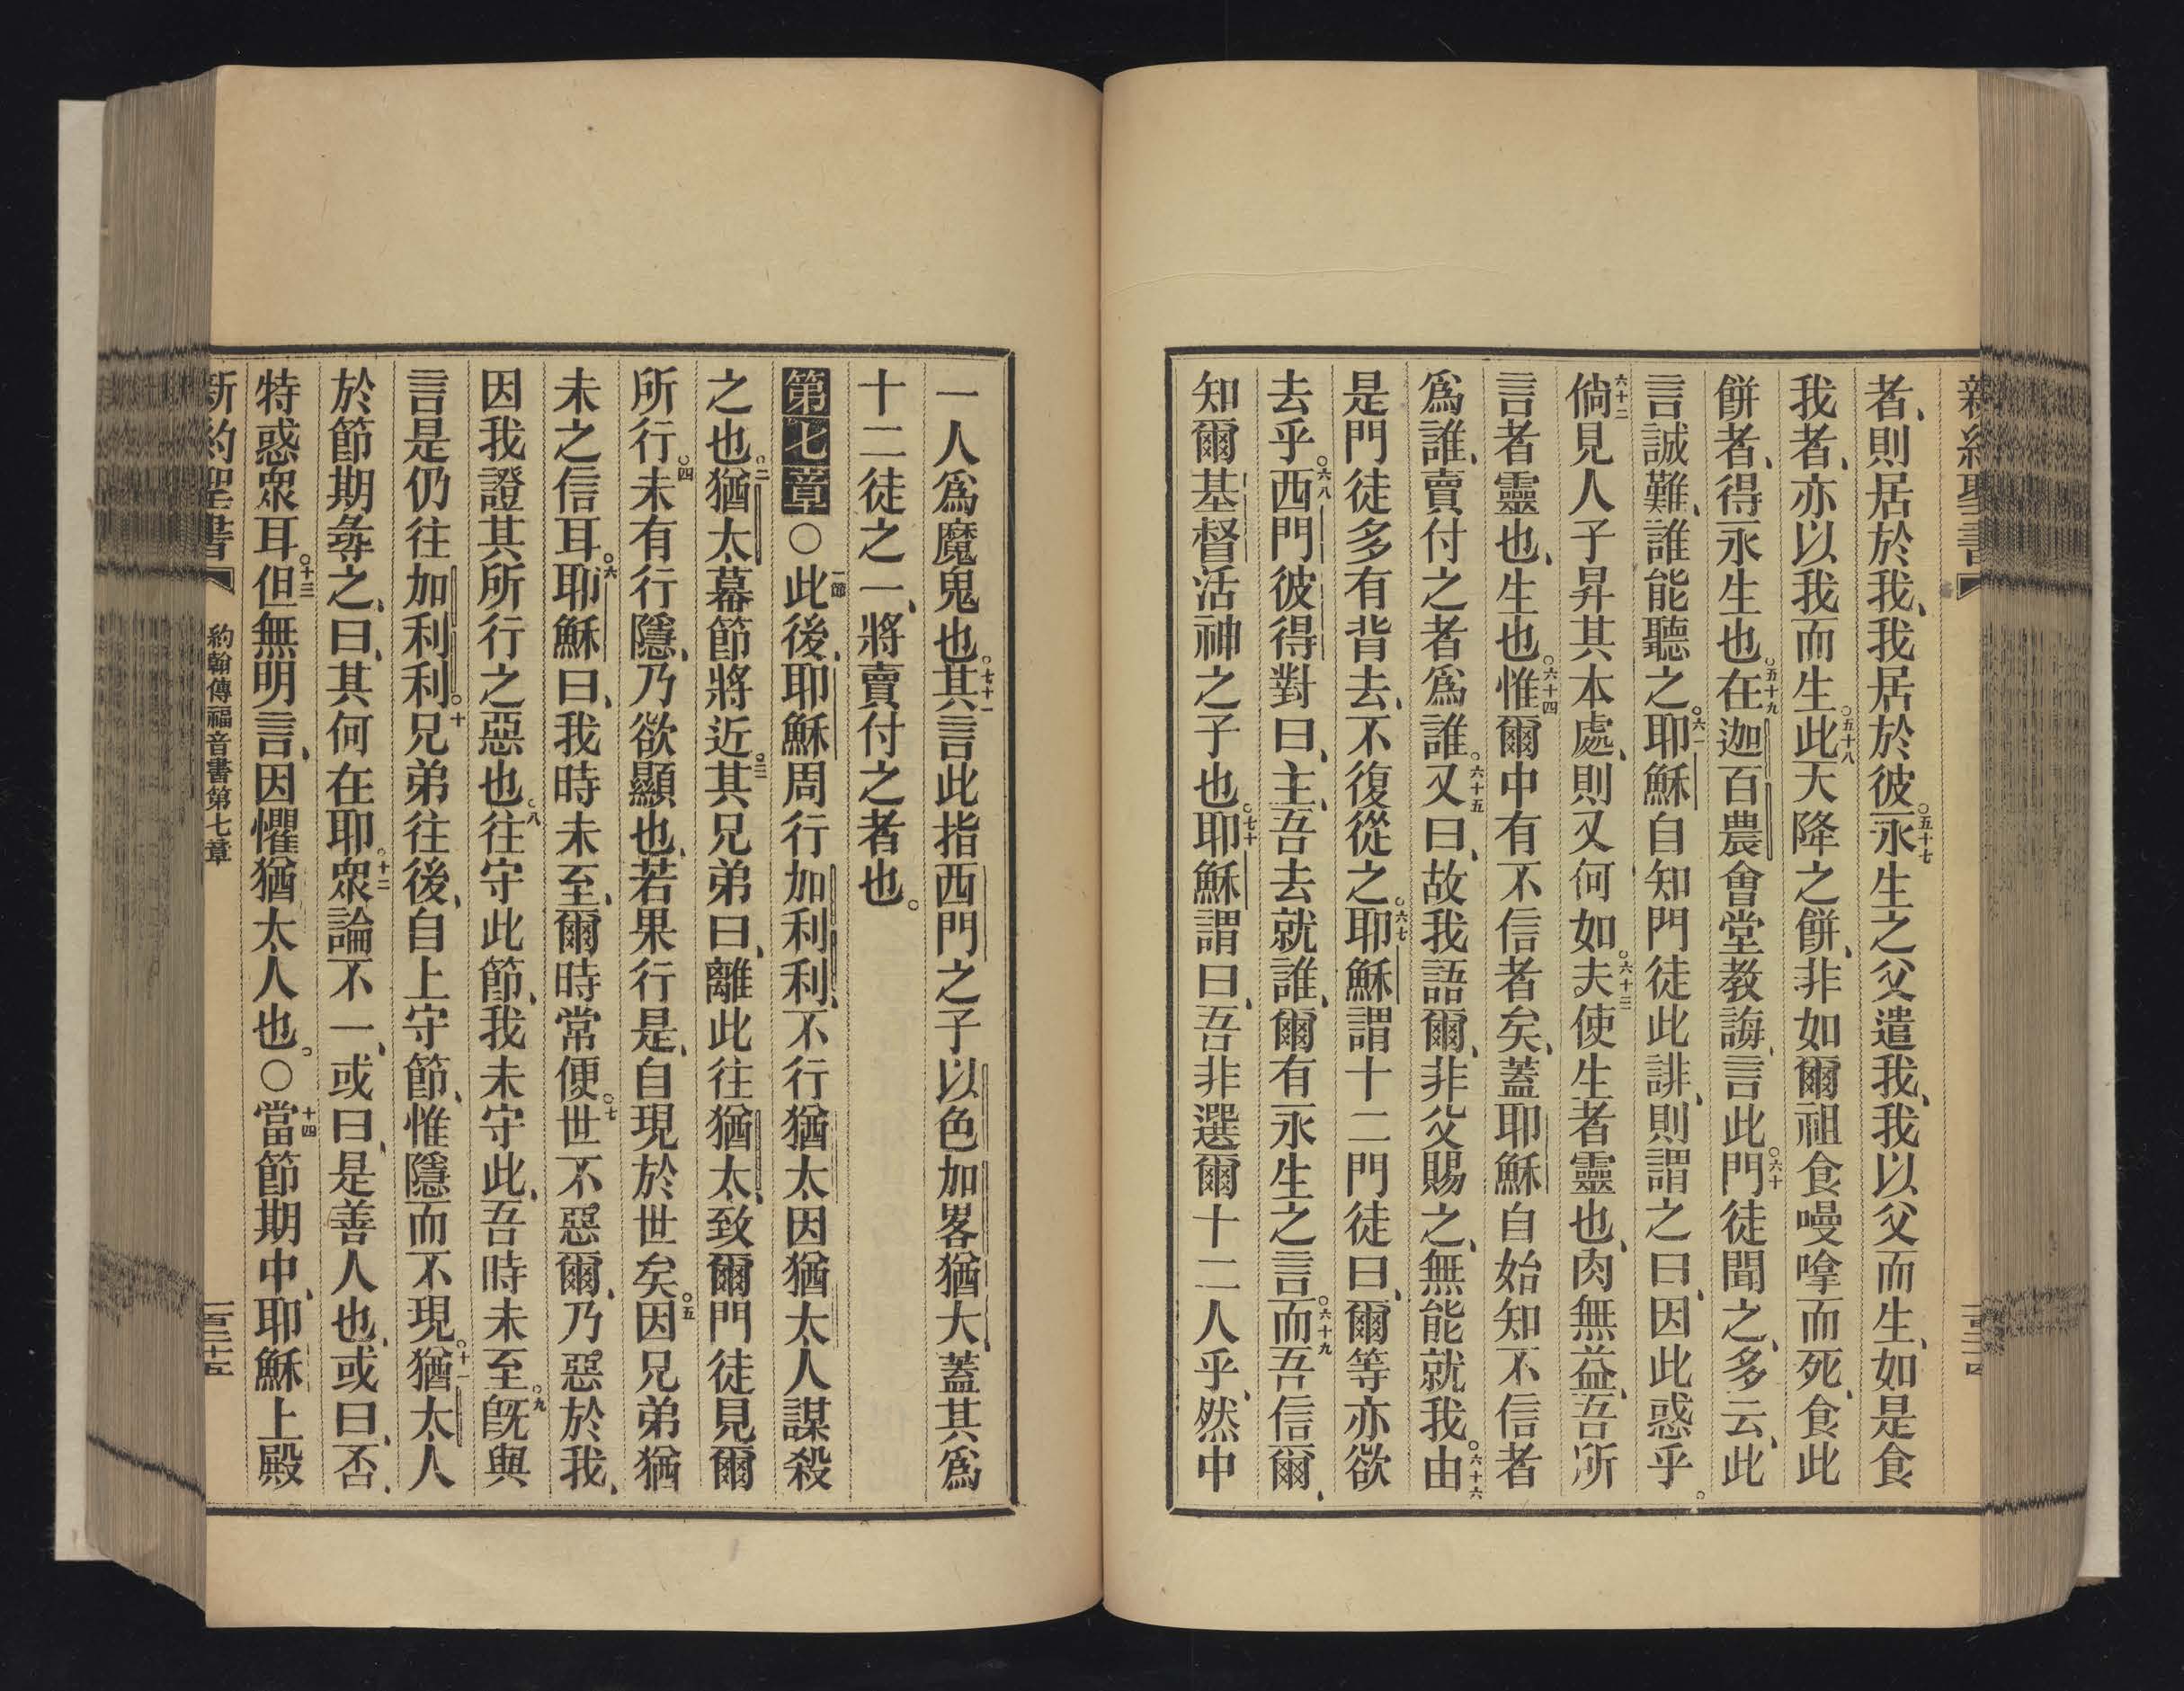 新約聖書
者、則居於我、我居於彼。五十七永生之父遣我、我以父而生、如是食
我者、亦以我而生。五十八此天降之餅、非如爾祖食嗎嗱而死、食此
餅者、得永生也。五十九在迦百農會堂教誨、言此。六十門徒聞之、多云、此
言誠難、誰能聽之。六一耶穌自知門徒此誹、則謂之曰、因此惑乎。
六十二倘見人子昇其本處、則又何如。六十三夫使生者靈也、肉無益、吾所
言者靈也、生也。六十四惟爾中有不信者矣、蓋耶穌自始知不信者
為誰、賣付之者為誰。六十五又曰、故我語爾、非父賜之、無能就我。六十六由
是門徒多有背去、不復從之。六七耶穌謂十二門徒曰、爾等亦欲
去乎。六八西門彼得對曰、主、吾去就誰、爾有永生之言。六十九而吾信爾、
知爾基督活神之子也。七十耶穌謂曰、吾非選爾十二人乎、然中
一人為魔鬼也。七十一其言此指西門之子以色加畧猶大、蓋其為
十二徒之一、將賣付之者也。
第七章〇一節此後、耶穌周行加利利、不行猶太因猶太人謀殺
之也。二猶太幕節將近。三其兄弟曰、離此往猶太、致爾門徒見爾
所行。四未有行隱、乃欲顯也、若果行是、自現於世矣。五因兄弟猶
未之信耳。六耶穌曰、我時未至、爾時常便。七世不惡爾、乃惡於我、
因我證其所行之惡也。八往守此節、我未守此、吾時未至。九既與
言是仍往加利利。十兄弟往後、自上守節、惟隱而不現。十一猶太人
於節期尋之、曰、其何在耶。十二眾論不一、或曰、是善人也、或曰、否、
特惑眾耳。十三但無明言、因懼猶太人也。〇十四當節期中、耶穌上殿
新約聖書 約翰傳福音書第七章 一百二十五